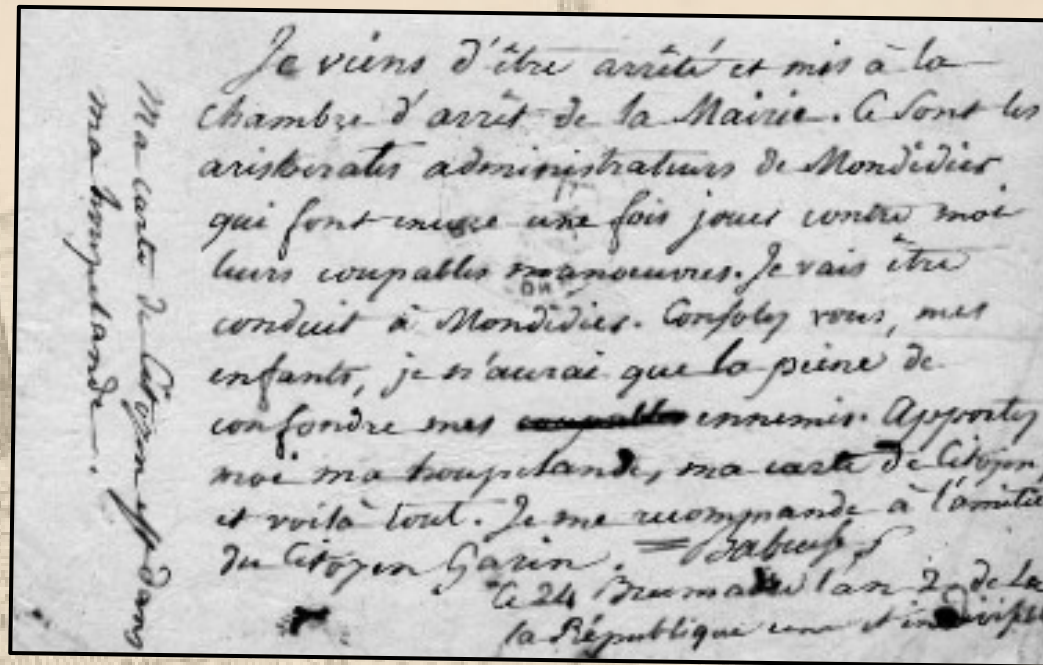 Je viens d'être arrêté et mis à la
chambre d'arrêt de la Mairie. Ce sont les
aristocrates administrateurs de Mondidier
qui font encore une fois jouer contre moi
leurs coupables manoeuvres. Je vais être
conduit à Mondidier. Consolez vous, mes
enfants, je n'aurai que la peine de
confondre mes coupables ennemis. Apportez
moi ma houpelande, ma carte de Citoyen,
et voilà tout. Je me recommande à l'amitié
du Citoyen Garin. Babeuf
Ce 24 Brumaire l'an 2 de la
la République une et indivisible
Ma carte de Citoyen est dans
ma houpelande.